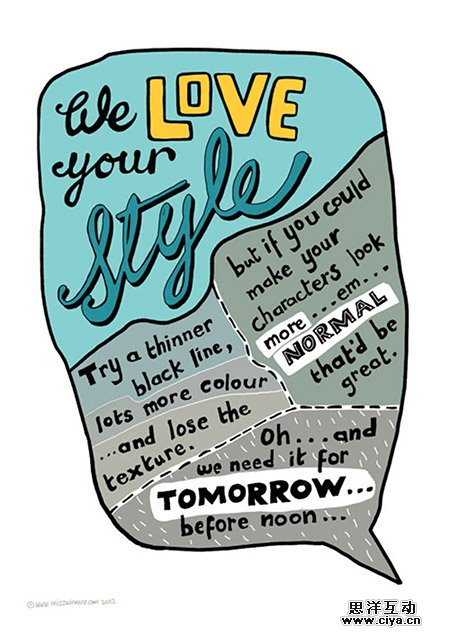 We LOVE
your
Style
but if you could
make your
characters look
more ...em...
NORMAL
that'd be
great.
Try a thinner
black line,
lots more colour
...and lose the
texture.
Oh...and
we need it for
TOMORROW...
before noon...
思洋互动
www.ciya.cn